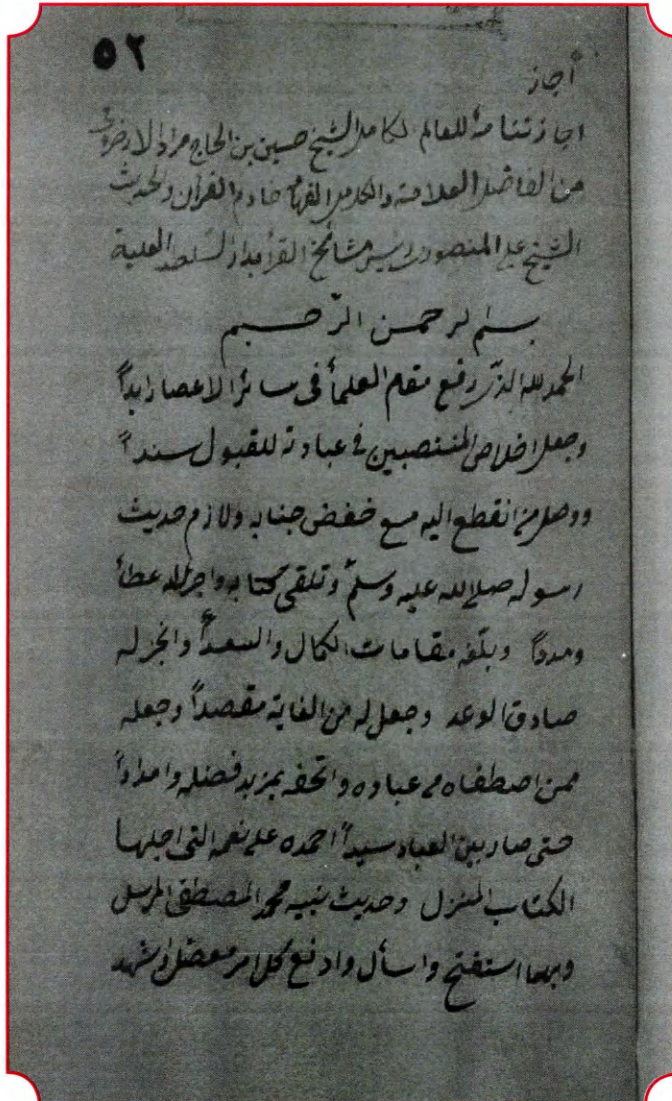 ٥٢
أجاز
اجازتنامهٔ للعالم الكامل الشيخ حسين بن الحاج مراد الارضرومى
من الفاضل العلامة والكامل الفهام خادم القرأن والحديث
الشيخ على المنصورى رئيس مشائخ القرأ بدار السلطنة العلية
بسم الرحمن الرّحيم
الحمد لله الذى رفع مقام العلمأ فى سائر الاعصار ابداً
وجعل اخلاص المنتصبين فى عبادته للقبول سنداً
ووصل من انقطع اليه مع خفض جنابه ولازم حديث
رسوله صلى الله عليه وسلم وتلقى كتابه واجزل له عطأ
ومدداً وبلّغه مقامات الكمال والسعدأ وانجز له
صادق الوعد وجعل له من الغاية مقصداً وجعله
ممن اصطفاه من عباده واتحفه بمزيد فضله وامداداً
حتى صار بين العباد سيداً احمده على نعمه التى اجلها
الكتاب المنزل وحديث نبيه محمد المصطفى المرسل
وبهما استفتح واسأل وادفع كل امر معضل واشهد